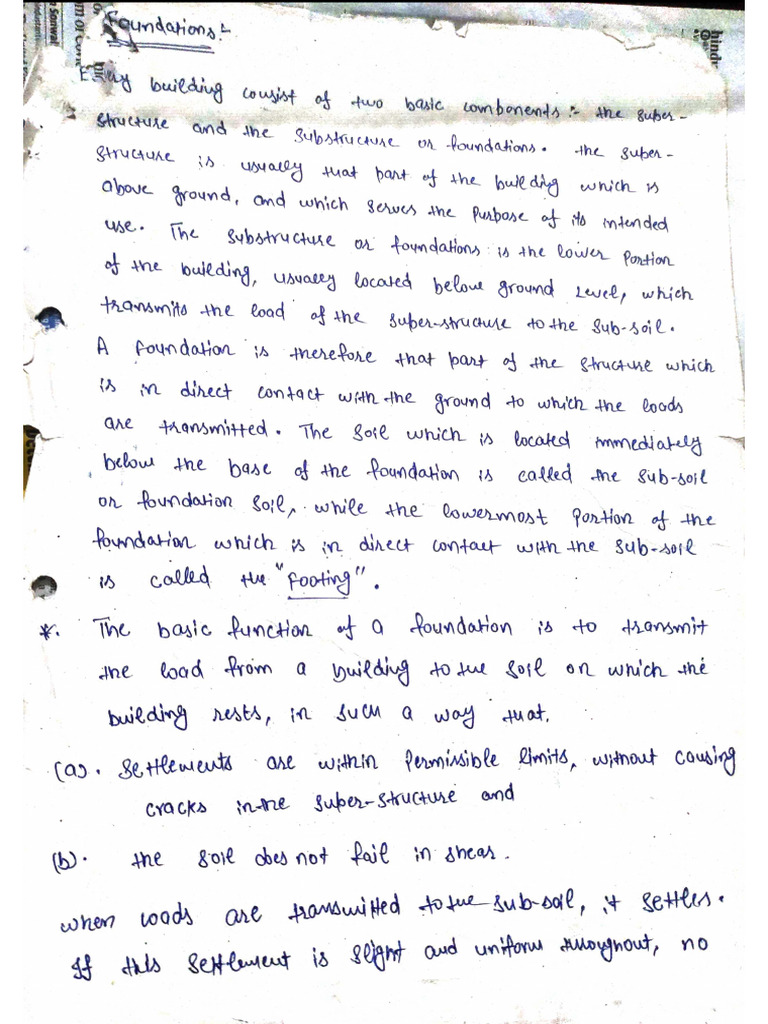 Foundations:-
Every building consist of two basic components:- the super-
structure and the substructure or foundations. the super-
structure is usually that part of the building which is
above ground, and which serves the purpose of its intended
use. The substructure or foundations is the lower portion
of the building, usually located below ground level, which
transmits the load of the super-structure to the sub-soil.
A foundation is therefore that part of the structure which
is in direct contact with the ground to which the loads
are transmitted. The soil which is located immediately
below the base of the foundation is called the sub-soil
or foundation soil, while the lowermost portion of the
foundation which is in direct contact with the sub-soil
is called the "footing".
*. The basic function of a foundation is to transmit
the load from a building to the soil on which the
building rests, in such a way that.
(a). settlements are within permissible limits, without causing
cracks in the super-structure and
(b). the soil does not fail in shear.
when loads are transmitted to the sub-soil, it settles.
If this settlement is slight and uniform throughout, no